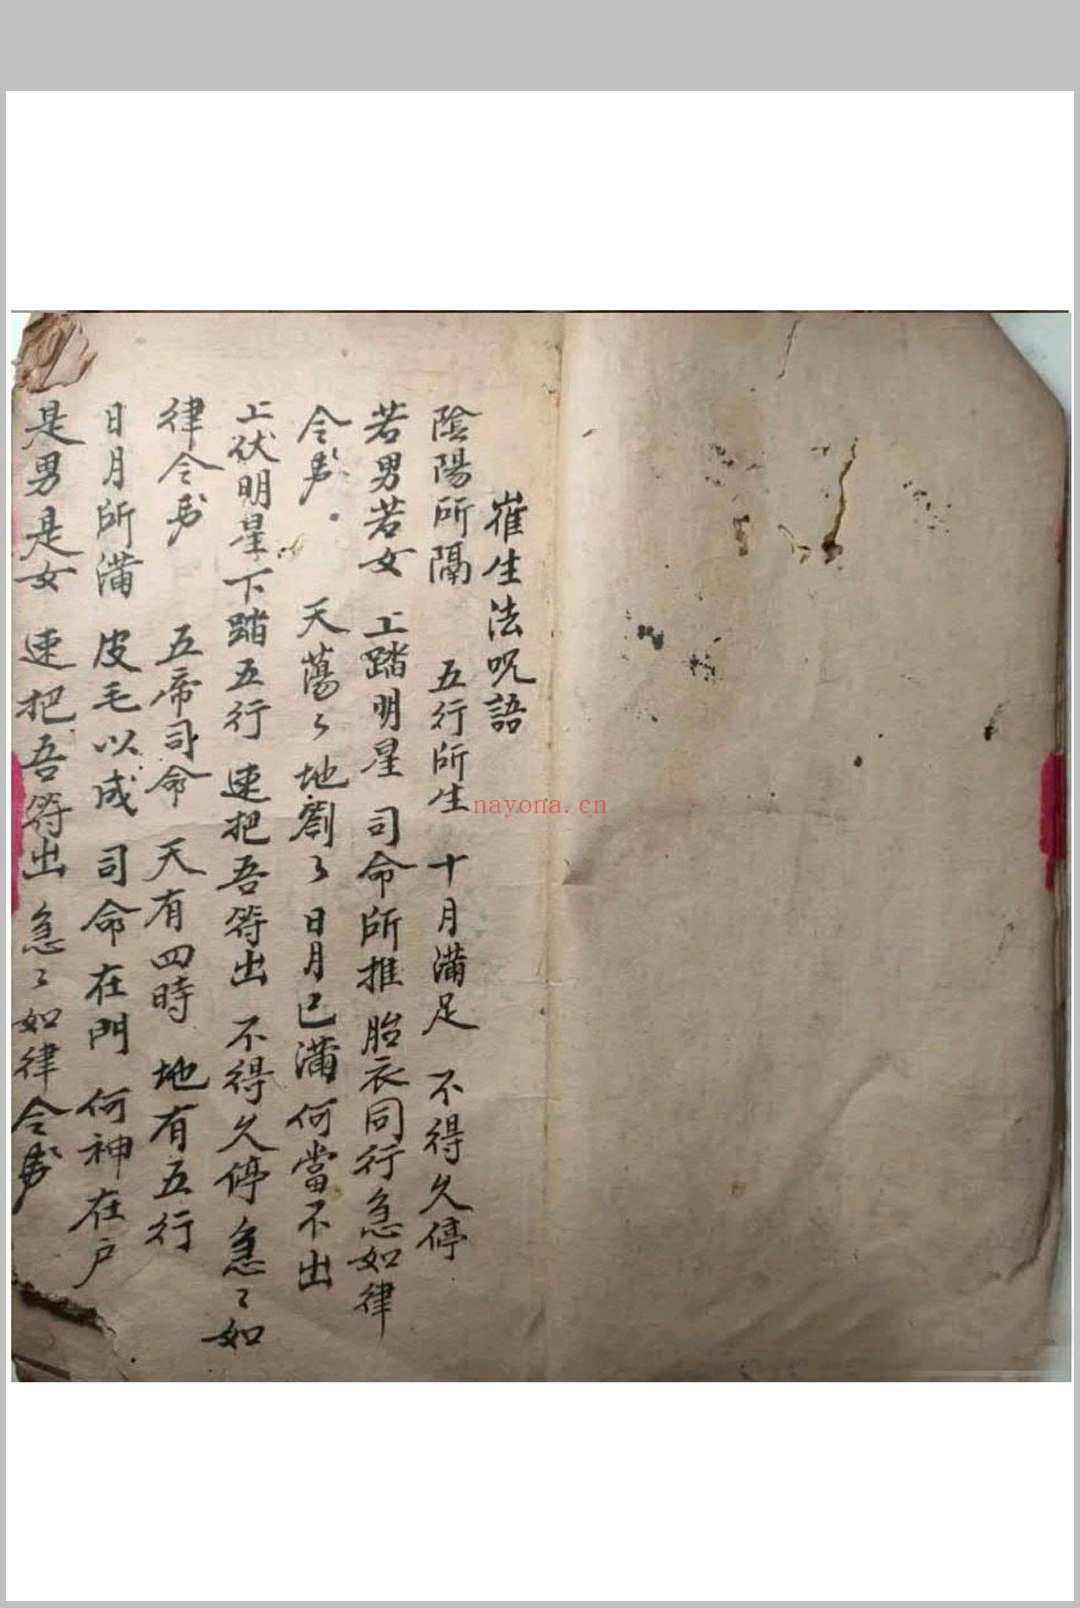 崔生法呪語
陰陽所隔 五行所生 十月滿足 不得久停
若男若女 上踏明星 司命所推 胎衣同行急如律
令 天蕩々地劉々日月已滿何當不出
上伏明星下踏五行 速把吾符出 不得久停 急〻如
律令 五帝司命 天有四時 地有五行
日月所滿 皮毛以成 司命在門 何神在户
是男是女 速把吾符出 急〻如律令
nayona.cn